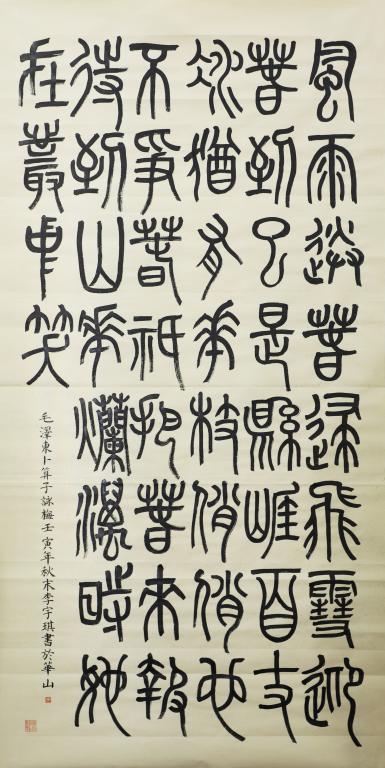 風雨送春歸飛雪迎
春到已是縣崖百丈
冰猶有華枝俏俏也
不爭春祇把春來報
待到山華爛漫時她
在叢中笑
毛澤東卜算子詠梅壬寅年秋末李宇琪書於華山